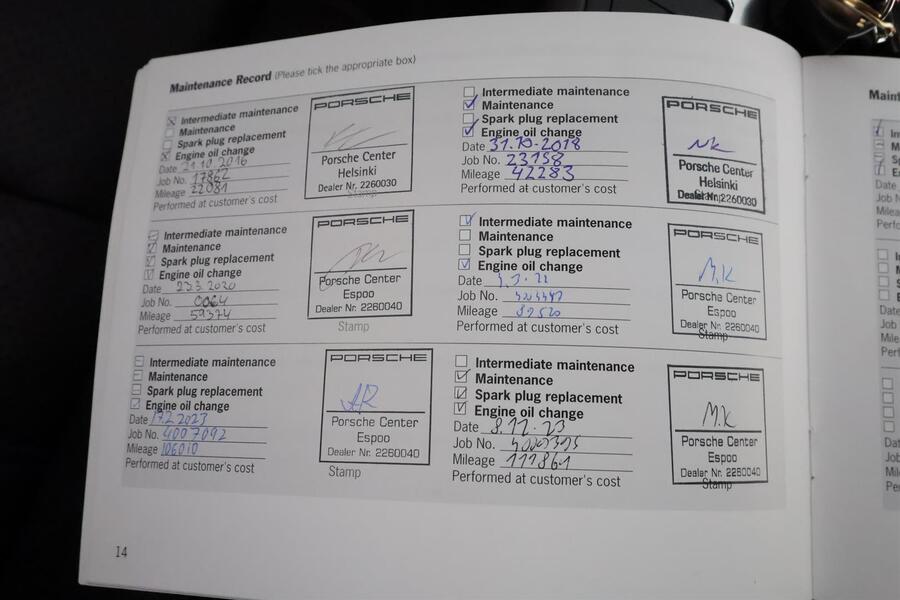 Maintenance Record (Please tick the appropriate box)
Intermediate maintenance
Maintenance
Spark plug replacement
Engine oil change
Date 21.10.2016
Job No. 17862
Mileage 22081
Performed at customer's cost
PORSCHE
Porsche Center
Helsinki
Dealer Nr. 2260030
Stamp
Intermediate maintenance
Maintenance
Spark plug replacement
Engine oil change
Date 31.10.2018
Job No. 23158
Mileage 42283
Performed at customer's cost
PORSCHE
NK
Porsche Center
Helsinki
Dealer Nr. 2260030
Stamp
Intermediate maintenance
Maintenance
Spark plug replacement
Engine oil change
Date 27.3.2020
Job No. 0064
Mileage 59374
Performed at customer's cost
PORSCHE
Porsche Center
Espoo
Dealer Nr. 2260040
Stamp
Intermediate maintenance
Maintenance
Spark plug replacement
Engine oil change
Date
Job No.
Mileage
Performed at customer's cost
PORSCHE
M.K
Porsche Center
Espoo
Dealer Nr. 2260040
Stamp
Intermediate maintenance
Maintenance
Spark plug replacement
Engine oil change
Date 17.2.2023
Job No. 4007092
Mileage 106010
Performed at customer's cost
PORSCHE
AR
Porsche Center
Espoo
Dealer Nr. 2260040
Stamp
Intermediate maintenance
Maintenance
Spark plug replacement
Engine oil change
Date 8.12.23
Job No.
Mileage 111861
Performed at customer's cost
PORSCHE
M.K
Porsche Center
Espoo
Dealer Nr. 2260040
Stamp
14